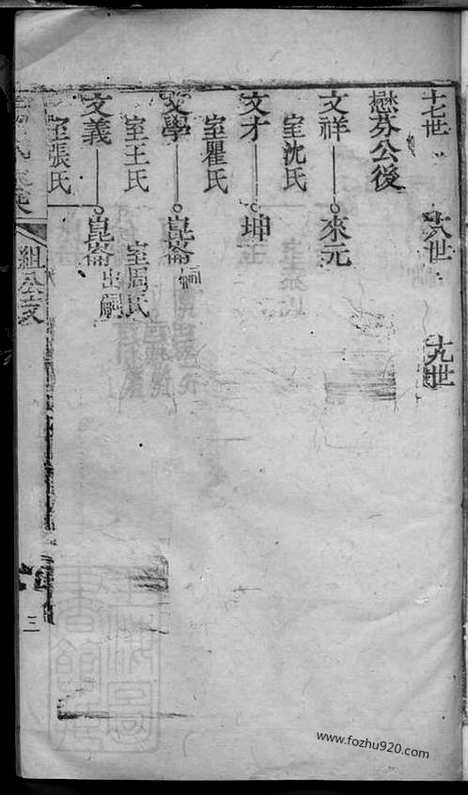 十七世 十八世 十九世
懋芬公後
文祥 來元
室沈氏
文才 坤
室瞿氏
文學 崑崙 嗣
室王氏 室周氏
文義 崑崙 出嗣
室張氏
組公支
三
www.fozhu920.com